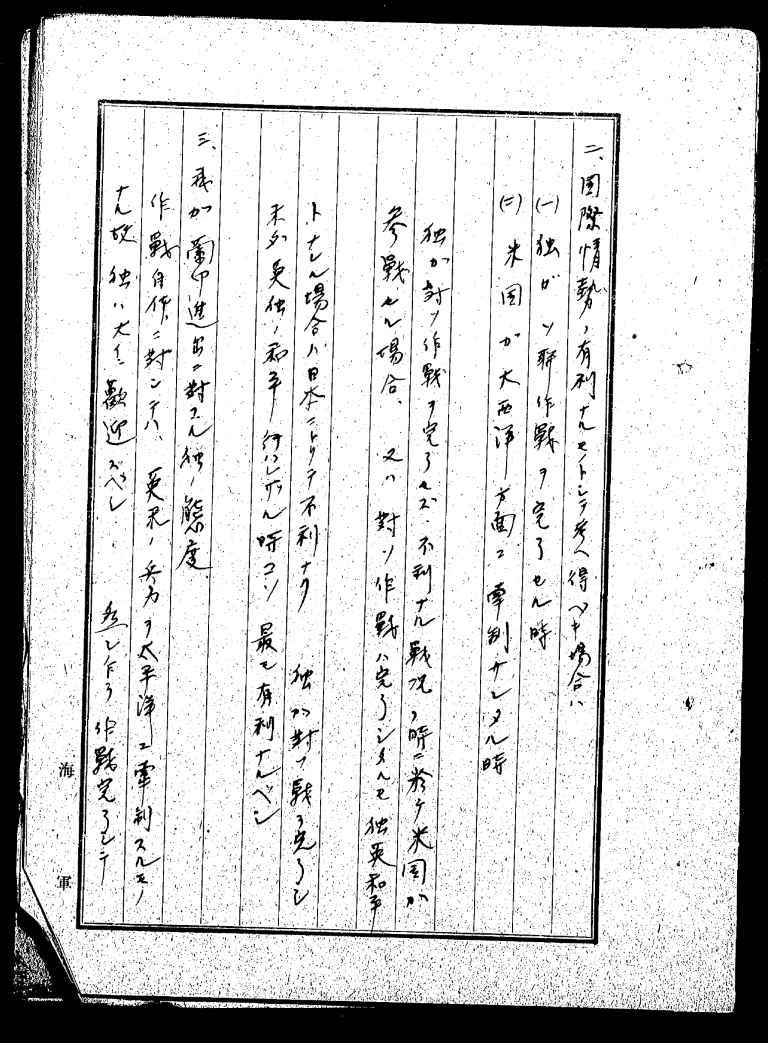 二、国際情勢ノ有利ナルモノトシテ考ヘ得ベキ場合ハ
(一)独ガソ聯作戦ヲ完了セル時
(二)米国カ大西洋方面ニ牽制サレタル時
独カ対ソ作戦ヲ完了セズ、不利ナル戦況ノ時ニ於テ米国カ
参戦セル場合、又ハ対ソ作戦ハ完了シタルモ独英和平
トナレル場合ハ日本ニトリテ不利ナリ 独カ対ソ戦ヲ完了シ
未タ英独ノ和平ノ行ハレザル時コソ最モ有利ナルベシ
三、我カ蘭印進出ニ対スル独ノ態度
作戦自体ニ対シテハ、英米ノ兵力ヲ太平洋ニ牽制スルモノ
ナル故独ハ大イニ歓迎スベシ、然シ乍ラ作戦完了シテ
海軍